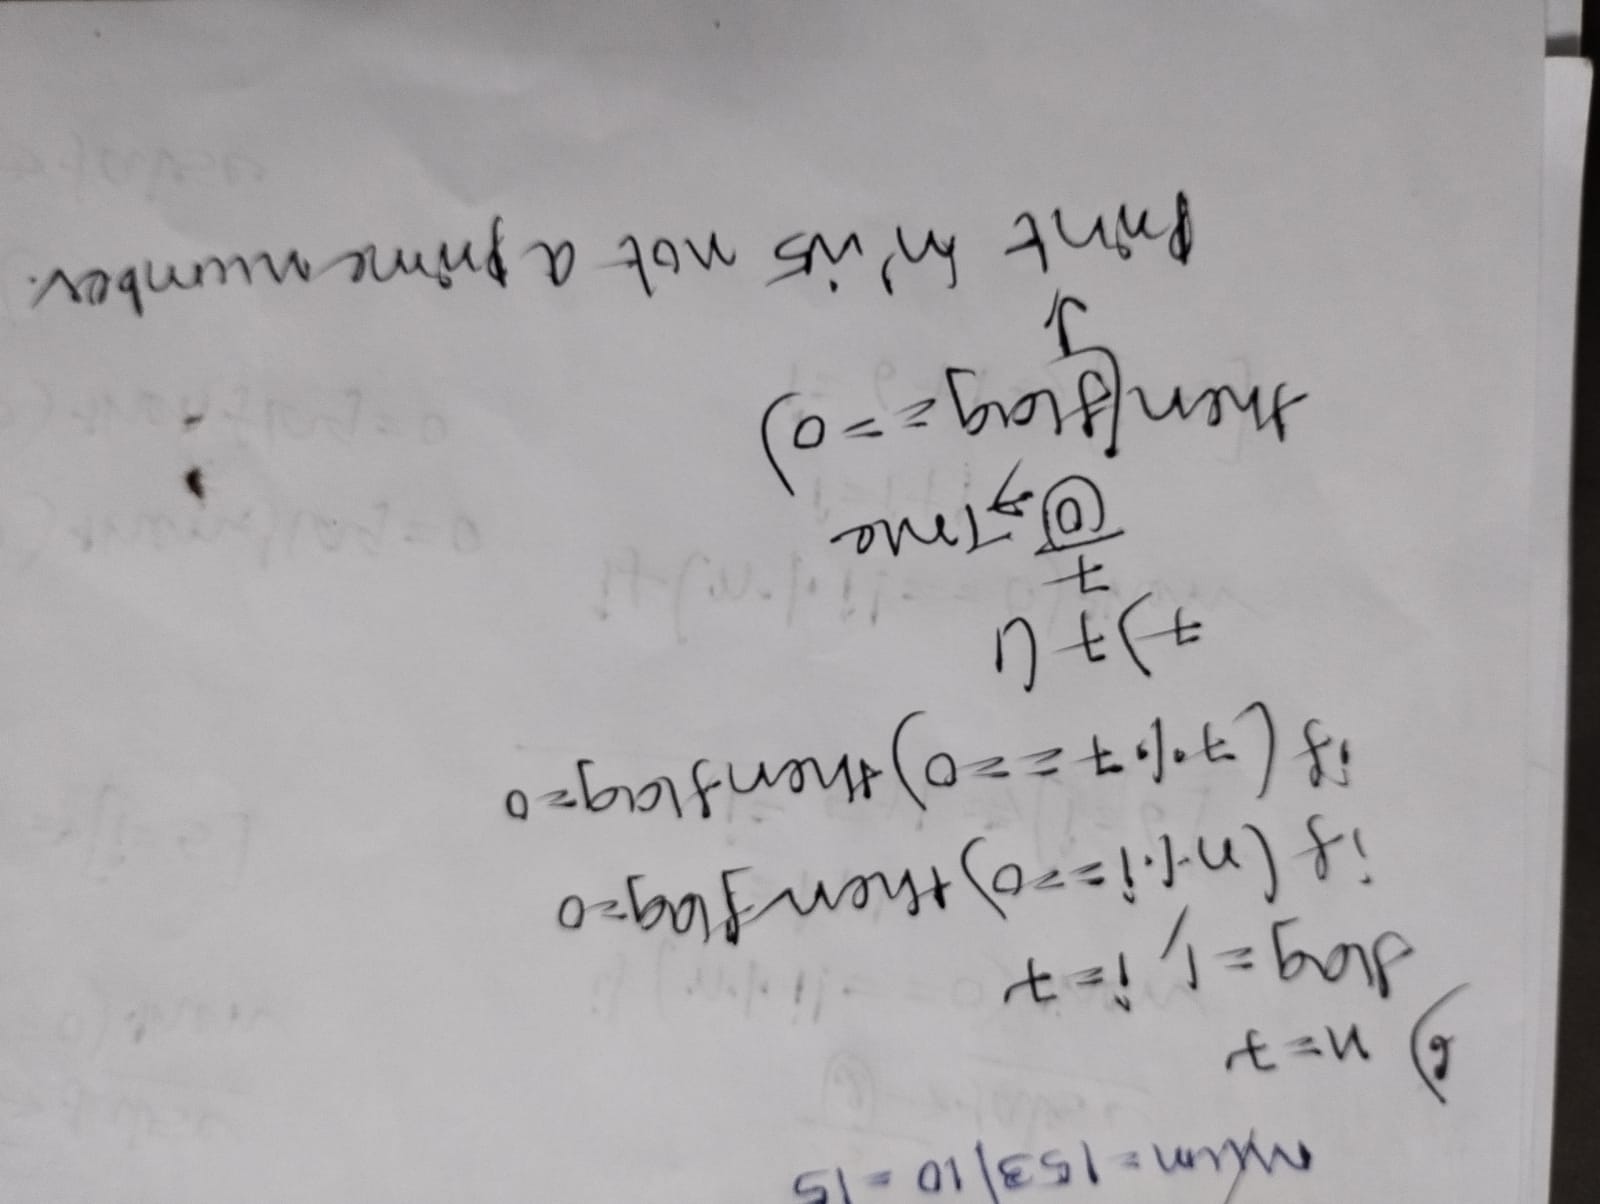 num = 153/10 = 15
6) n=7
flag = 1, i=7
if (n % i == 0) then flag=0
if (7 % 7 == 0) then flag=0
7) 7 (1
7
0 → True
then (flag == 0)
↓
Print 'n' is not a prime number.